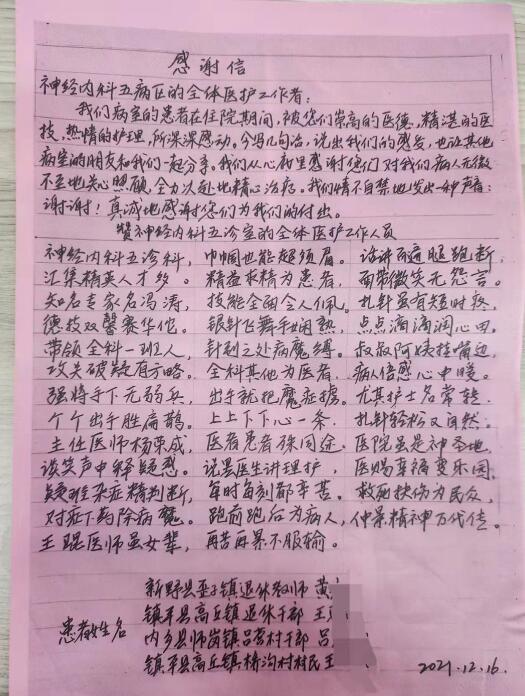 感谢信
神经内科五病区的全体医护工作者:
我们病室的患者在住院期间,被您们崇高的医德,精湛的医
技、热情的护理,所深深感动。今写几句话,说出我们的感受,也让其他
病室的朋友和我们一起分享。我们从心底里感谢您们对我们病人无微
不至地关心照顾,全力以赴地精心治疗。我们情不自禁地发出一种声音:
谢谢!真诚地感谢您们为我们的付出。
赞神经内科五诊室的全体医护工作人员
神经内科五诊科, 巾帼也能超须眉。 话讲百遍腿跑断
汇集精英人才多。 精益求精为患者, 面带微笑无怨言。
知名专家名冯涛, 技能全面令人佩。 扎针虽有短时疼,
德技双馨赛华佗。 银针飞舞手娴熟, 点点滴滴润心田。
带领全科一班人, 针到之处病魔缚。 叔叔阿姨挂嘴边,
攻关破疑有方略。 全科其他为医者, 病人倍感心中暖。
强将手下无弱兵, 出手就把魔症擒。 尤其护士名常轶
个个出手胜扁鹊。 上上下下心一条, 扎针轻松又自然。
主任医师杨东成, 医者患者殊同途。 医院虽是神圣地,
谈笑声中释疑惑。 说罢医生讲理护, 医赐幸福变乐园。
疑难杂症精判断, 每时每刻都辛苦。 救死扶伤为民众,
对症下药除病魔。 跑前跑后为病人, 仲景精神万代传。
王琨医师虽女辈, 再苦再累不服输。
新野县歪子镇退休教师 黄
镇平县高丘镇退休干部 王
患者姓名
内乡县师岗镇吕营村干部 吕
镇平县高丘镇桥沟村村民王
2021.12.16.